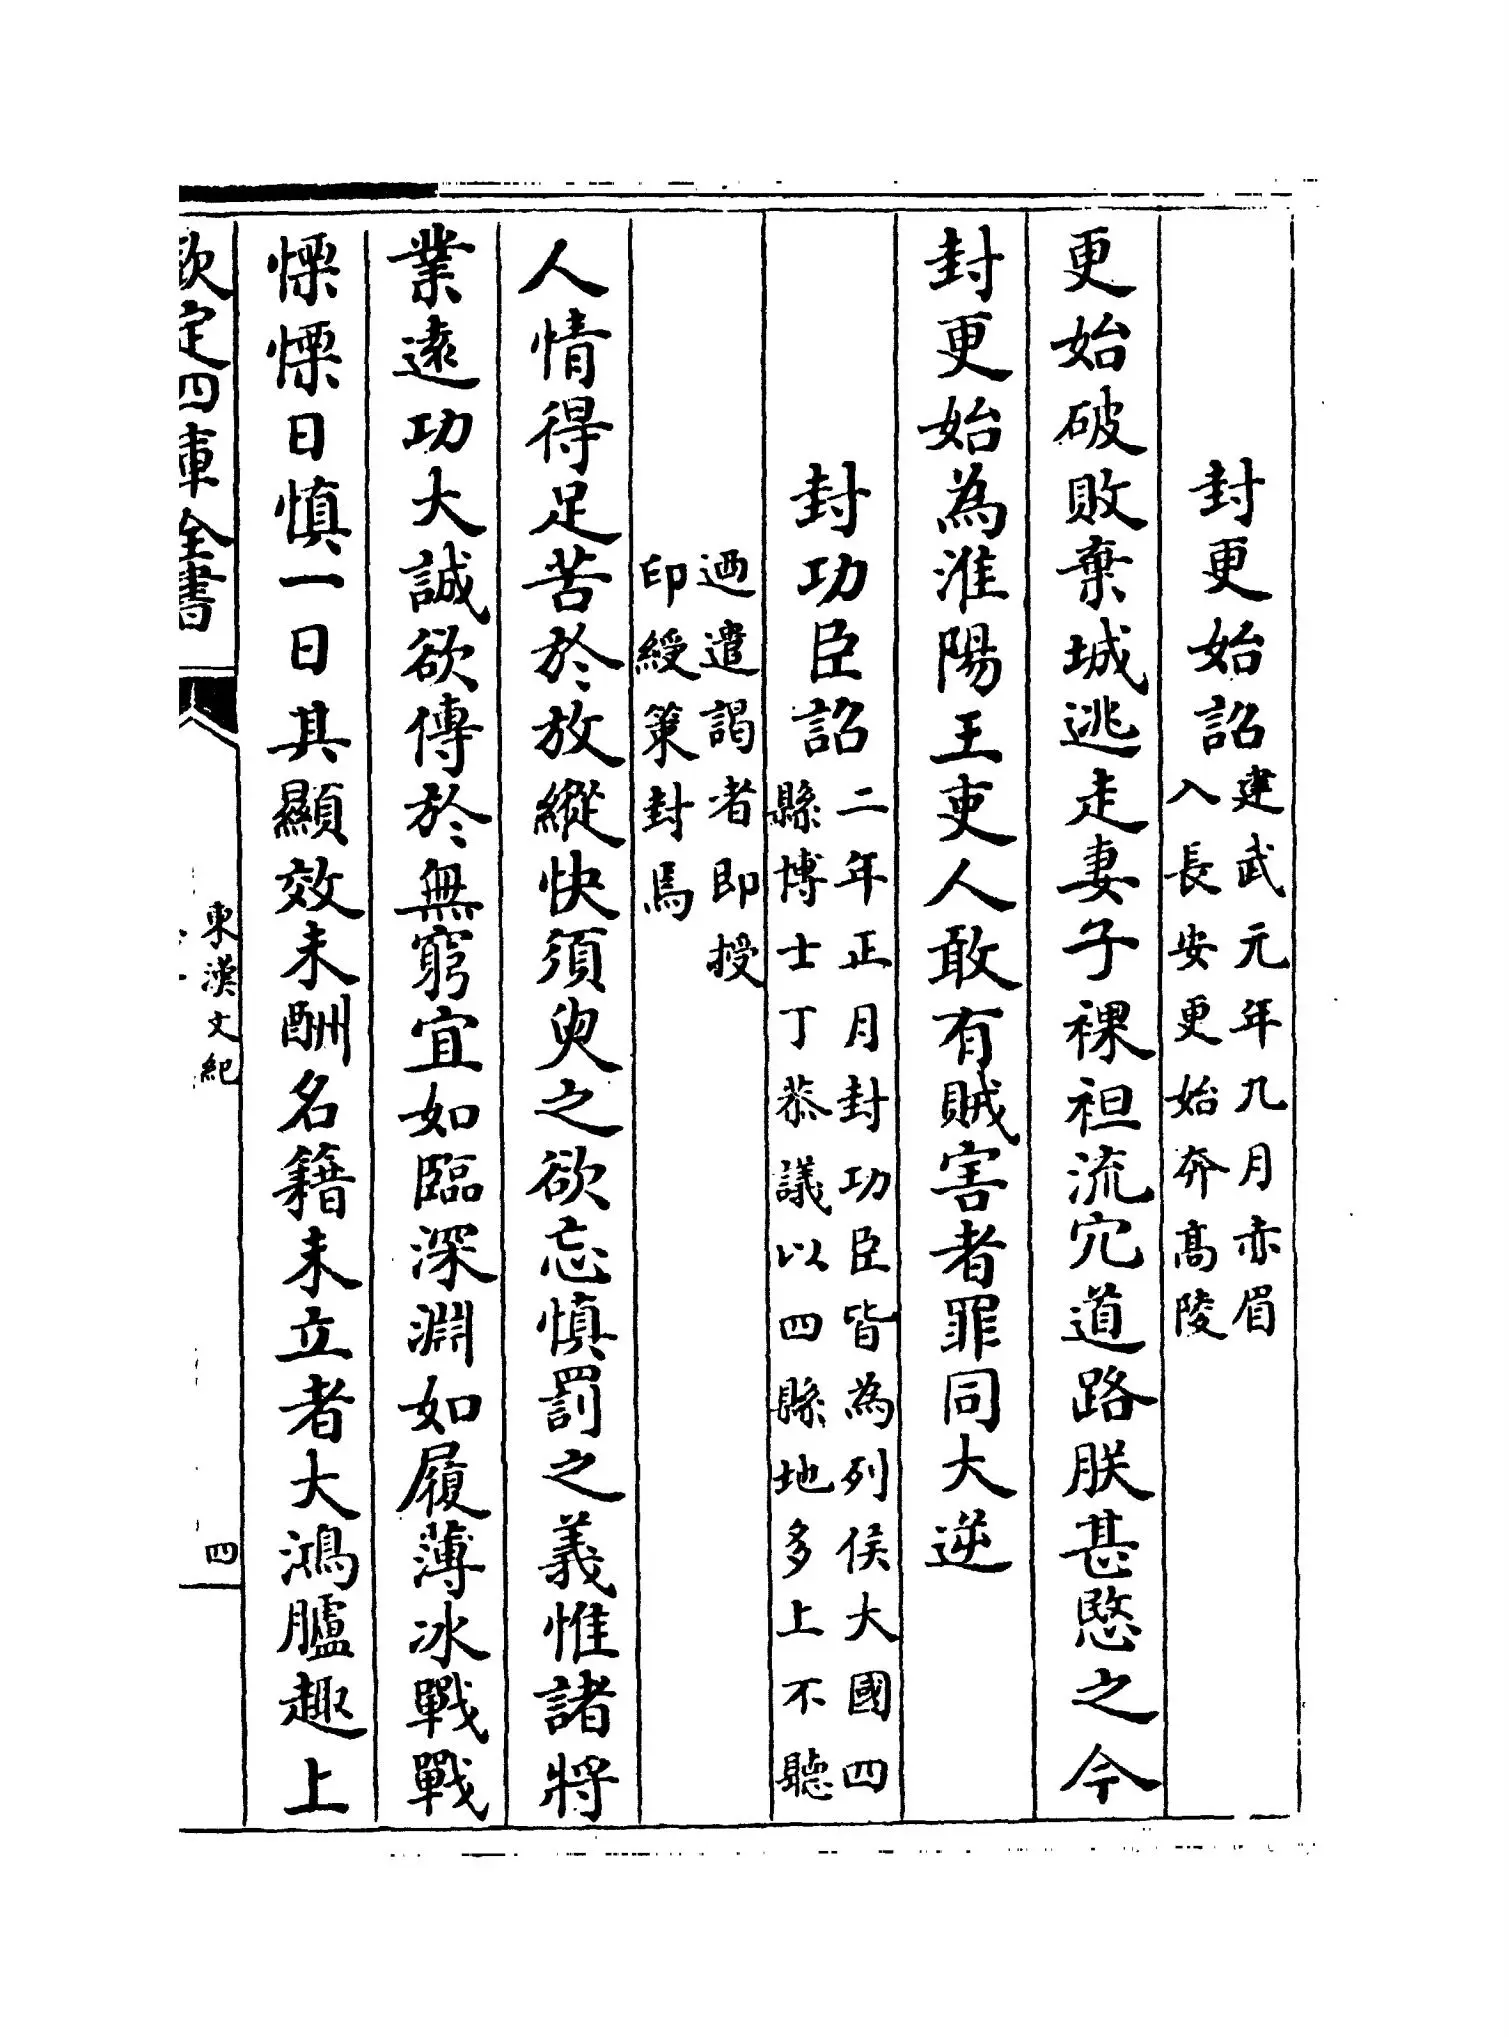 封更始詔
建武元年九月赤眉
入長安更始奔髙陵
更始破敗棄城逃走妻子裸袒流宂道路朕甚愍之今
封更始為淮陽王吏人敢有賊害者罪同大逆
封功臣詔
二年正月封功臣皆為列侯大國四
縣博士丁恭議以四縣地多上不聽
迺遣謁者即授
印綬策封焉
人情得足苦於放縱快須臾之欲忘慎罰之義惟諸將
業逺功大誠欲傳於無窮宜如臨深淵如履薄冰戰戰
慄慄日慎一日其顯效未酬名籍未立者大鴻臚趣上
欽定四庫全書
東漢文紀
四